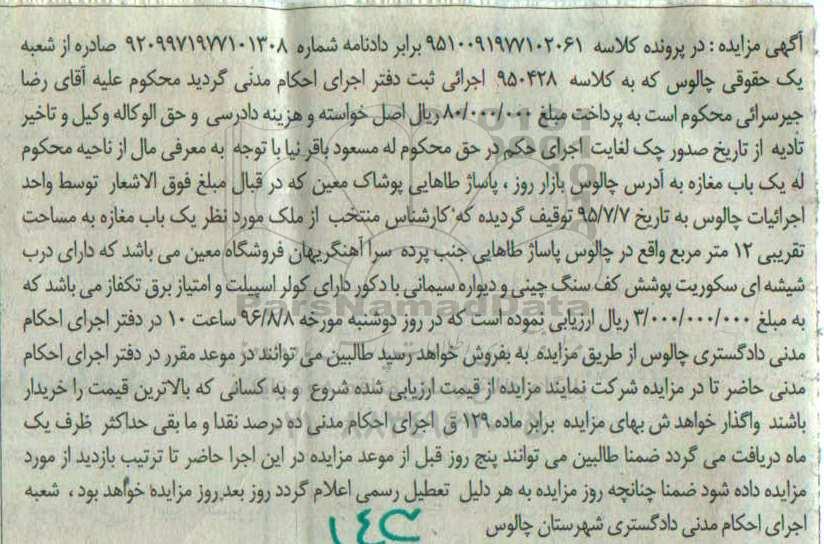 آگهی مزایده : در پرونده کلاسه ۹۵۱۰۰۹۱۹۷۷۱۰۲۰۶۱ برابر دادنامه شماره ۹۲۰۹۹۷۱۹۷۷۱۰۱۳۰۸ صادره از شعبه
یک حقوقی چالوس که به کلاسه ۹۵۰۴۲۸ اجرائی ثبت دفتر اجرای احکام مدنی گردید محکوم علیه آقای رضا
جیرسرائی محکوم است به پرداخت مبلغ ۸۰/۰۰۰/۰۰۰ ریال اصل خواسته و هزینه دادرسی و حق الوکاله وکیل و تاخیر
تادیه از تاریخ صدور چک لغایت اجرای حکم در حق محکوم له مسعود باقر نیا با توجه به معرفی مال از ناحیه محکوم
له یک باب مغازه به آدرس چالوس بازار روز ، پاساژ طاهایی پوشاک معین که در قبال مبلغ فوق الاشعار توسط واحد
اجرائیات چالوس به تاریخ ۹۵/۷/۷ توقیف گردیده که کارشناس منتخب از ملک مورد نظر یک باب مغازه به مساحت
تقریبی ۱۲ متر مربع واقع در چالوس پاساژ طاهایی جنب پرده سرا آهنگریهان فروشگاه معین می باشد که دارای درب
شیشه ای سکوریت پوشش کف سنگ چینی و دیواره سیمانی با دکور دارای کولر اسپیلت و امتیاز برق تکفاز می باشد که
به مبلغ ۳/۰۰۰/۰۰۰/۰۰۰ ریال ارزیابی نموده است که در روز دوشنبه مورخه ۹۶/۸/۸ ساعت ۱۰ در دفتر اجرای احکام
مدنی دادگستری چالوس از طریق مزایده به بفروش خواهد رسید طالبین می توانند در موعد مقرر در دفتر اجرای احکام
مدنی حاضر تا در مزایده شرکت نمایند مزایده از قیمت ارزیابی شده شروع و به کسانی که بالاترین قیمت را خریدار
باشند واگذار خواهد ش بهای مزایده برابر ماده ۱۲۹ ق اجرای احکام مدنی ده درصد نقدا و ما بقی حداکثر ظرف یک
ماه دریافت می گردد ضمنا طالبین می توانند پنج روز قبل از موعد مزایده در این اجرا حاضر تا ترتیب بازدید از مورد
مزایده داده شود ضمنا چنانچه روز مزایده به هر دلیل تعطیل رسمی اعلام گردد روز بعد روز مزایده خواهد بود ، شعبه
اجرای احکام مدنی دادگستری شهرستان چالوس
ParsNamadData